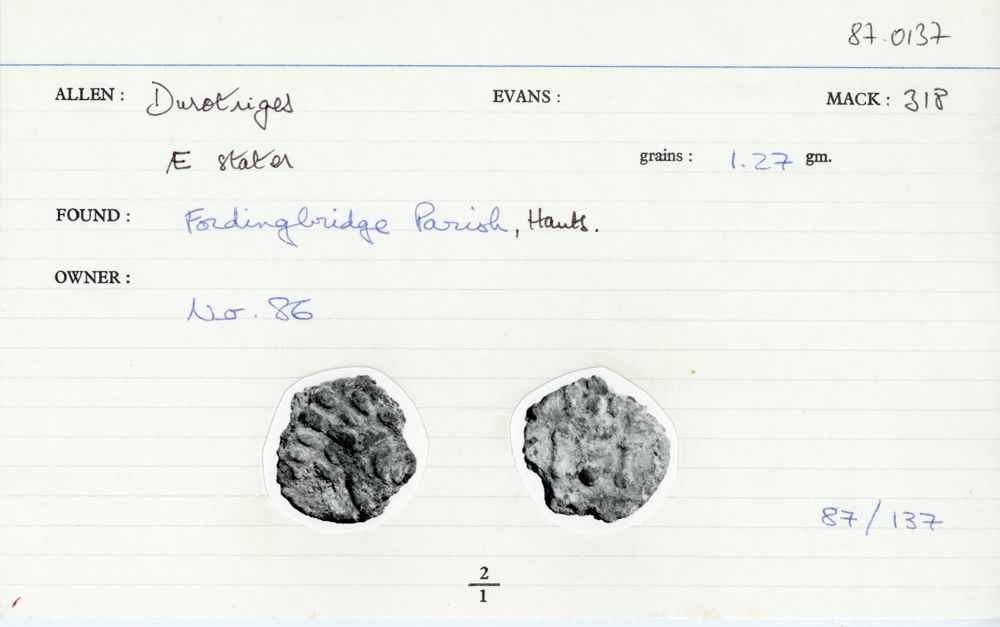 87.0137
ALLEN : Durotriges EVANS : MACK : 318
Æ stater grains : 1.27 gm.
FOUND : Fordingbridge Parish, Hants.
OWNER :
No. 86
87/137
2
1